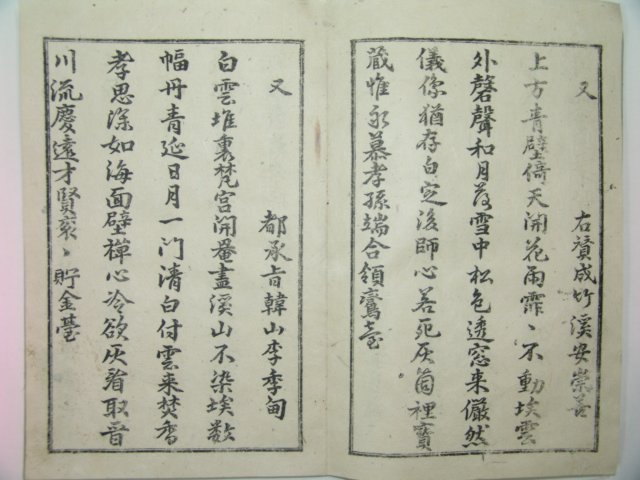 又
右贊成竹溪安崇善
上方青壁倚天開花雨霏〻不動埃雲
外磬聲和月落雪中松色透窓来儼然
儀像猶存白定後師心若死灰箇裡寶
藏惟永慕孝孫端合領鸞臺
又
都承㫖韓山李季甸
白雲堆裏梵宮開罨畫溪山不染埃数
幅丹青延日月一門清白付雲来焚香
孝思深如海面壁禪心冷欲灰看取晉
川流慶遠才賢袞〻貯金臺